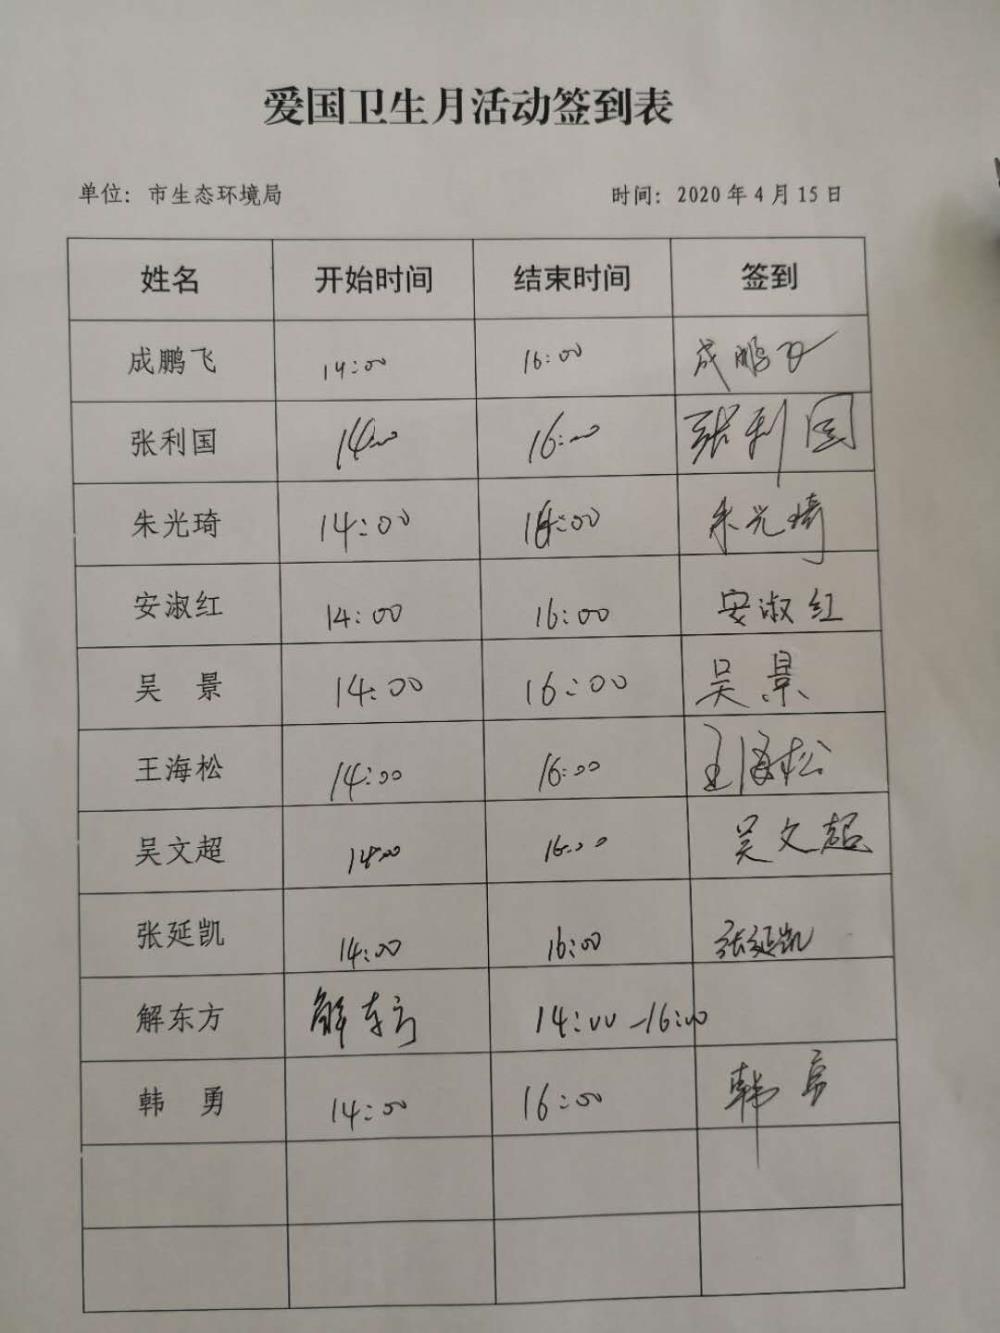 爱国卫生月活动签到表
单位：市生态环境局 时间：2020年4月15日
姓名 开始时间 结束时间 签到
成鹏飞 14:00 16:00 成鹏飞
张利国 14:00 16:00 张利国
朱光琦 14:00 16:00 朱光琦
安淑红 14:00 16:00 安淑红
吴 景 14:00 16:00 吴景
王海松 14:00 16:00 王海松
吴文超 14:00 16:00 吴文超
张延凯 14:00 16:00 张延凯
解东方 解东方 14:00-16:00
韩 勇 14:00 16:00 韩勇